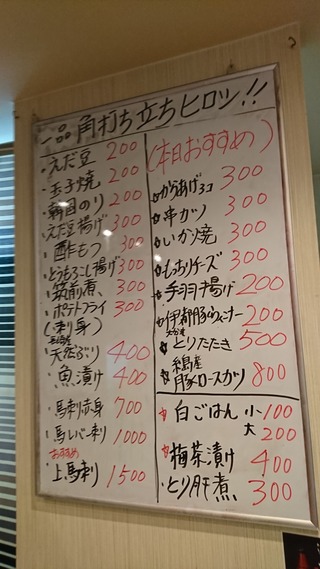 一品 角打ち立ちヒロッ!!
・えだ豆 200
・玉子焼 200
・韓国のり 200
・えだ豆揚げ 300
・酢もつ 300
・とうもろこし揚げ 300
・筑前煮、 300
・ポテトフライ 300
(刺身)
天然ぶり 400
・魚漬け 400
・馬刺赤身 700
・馬レバー刺 1000
おすすめ
・上馬刺 1500
(本日おすすめ)
からあげ5コ 300
串カツ 300
いか焼 300
もっちりチーズ 300
手羽揚げ 200
伊都豚ウィンナー 200
大分産
とりたたき 500
糸島産
豚ロースカツ 800
白ごはん 小 100
大 200
梅茶漬け 400
・とり肝煮 300